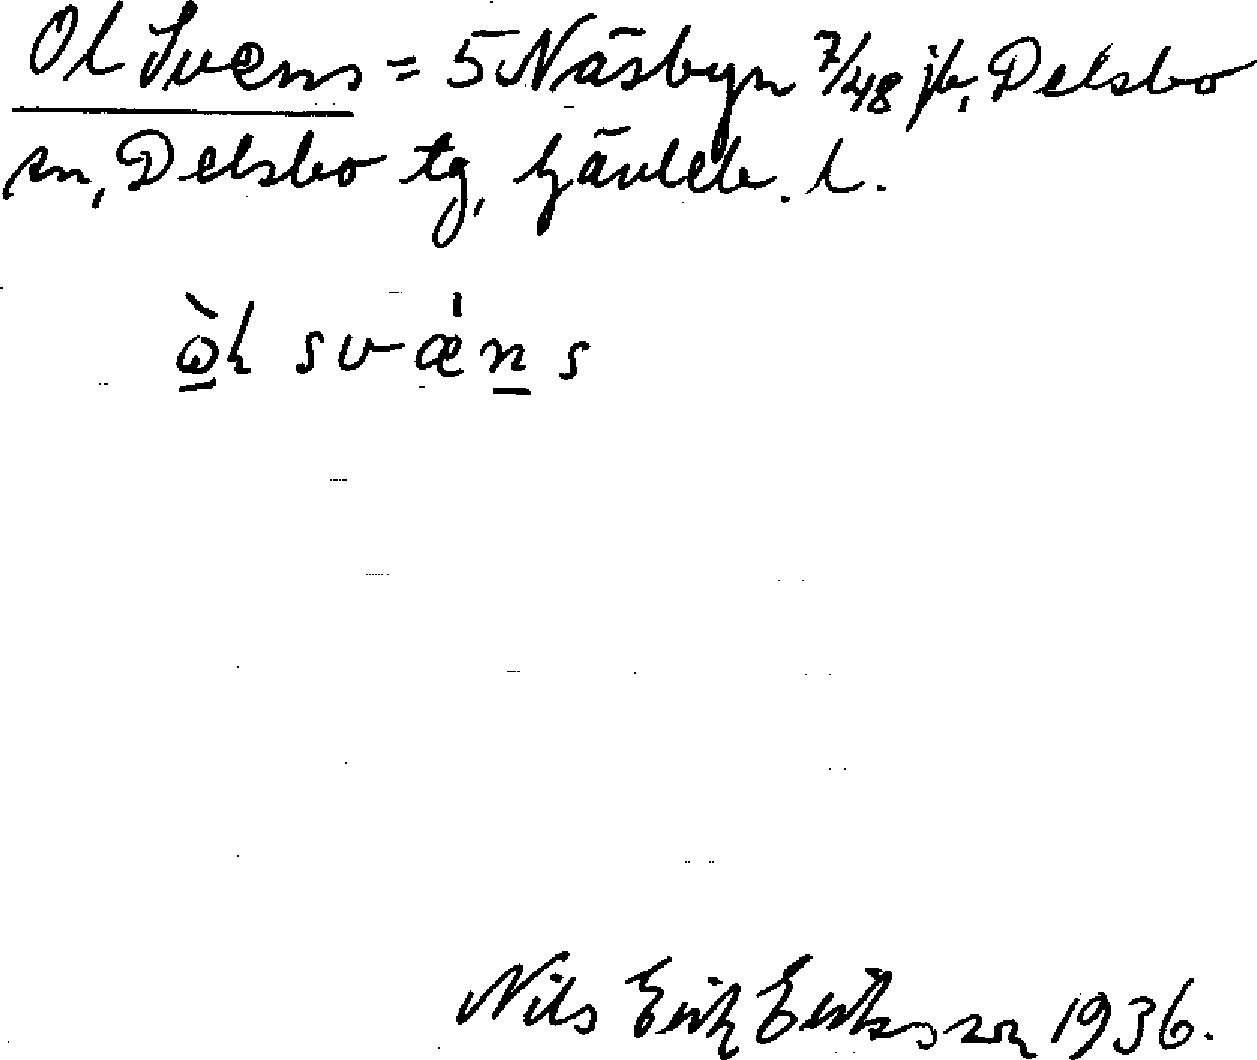 Ol Svens = 5 Näsbyn 7/48 jb, Delsbo
sn, Delsbo tg, Gävleb. l.
ὼl svæ̍n̲s
Nils Erik Eriksson 1936.